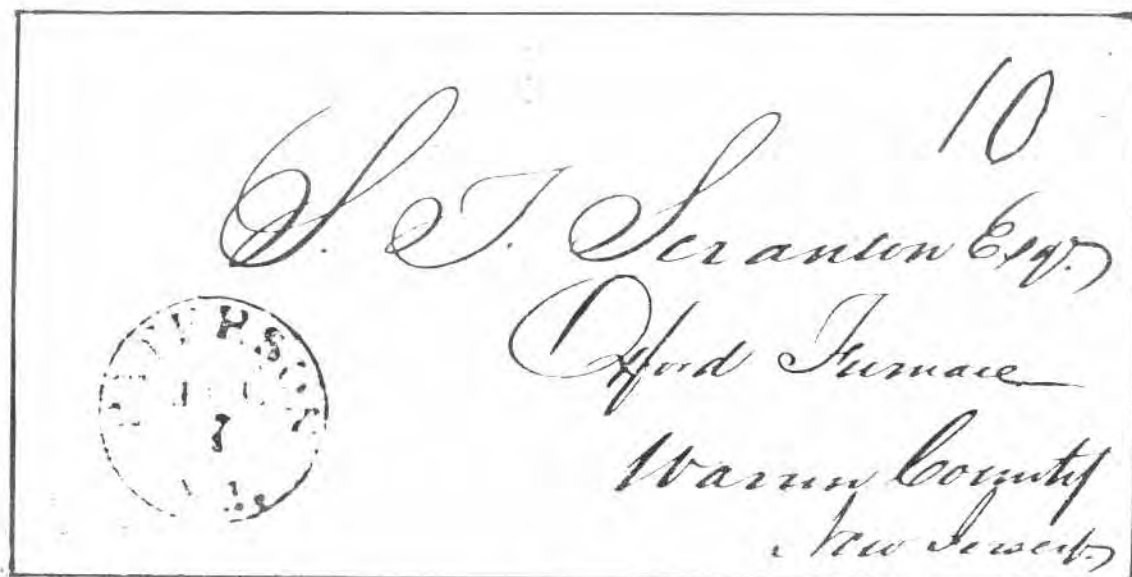 10
S. T. Scranton Esqr.
Oxford Furnace
Warren County
New Jersey
7